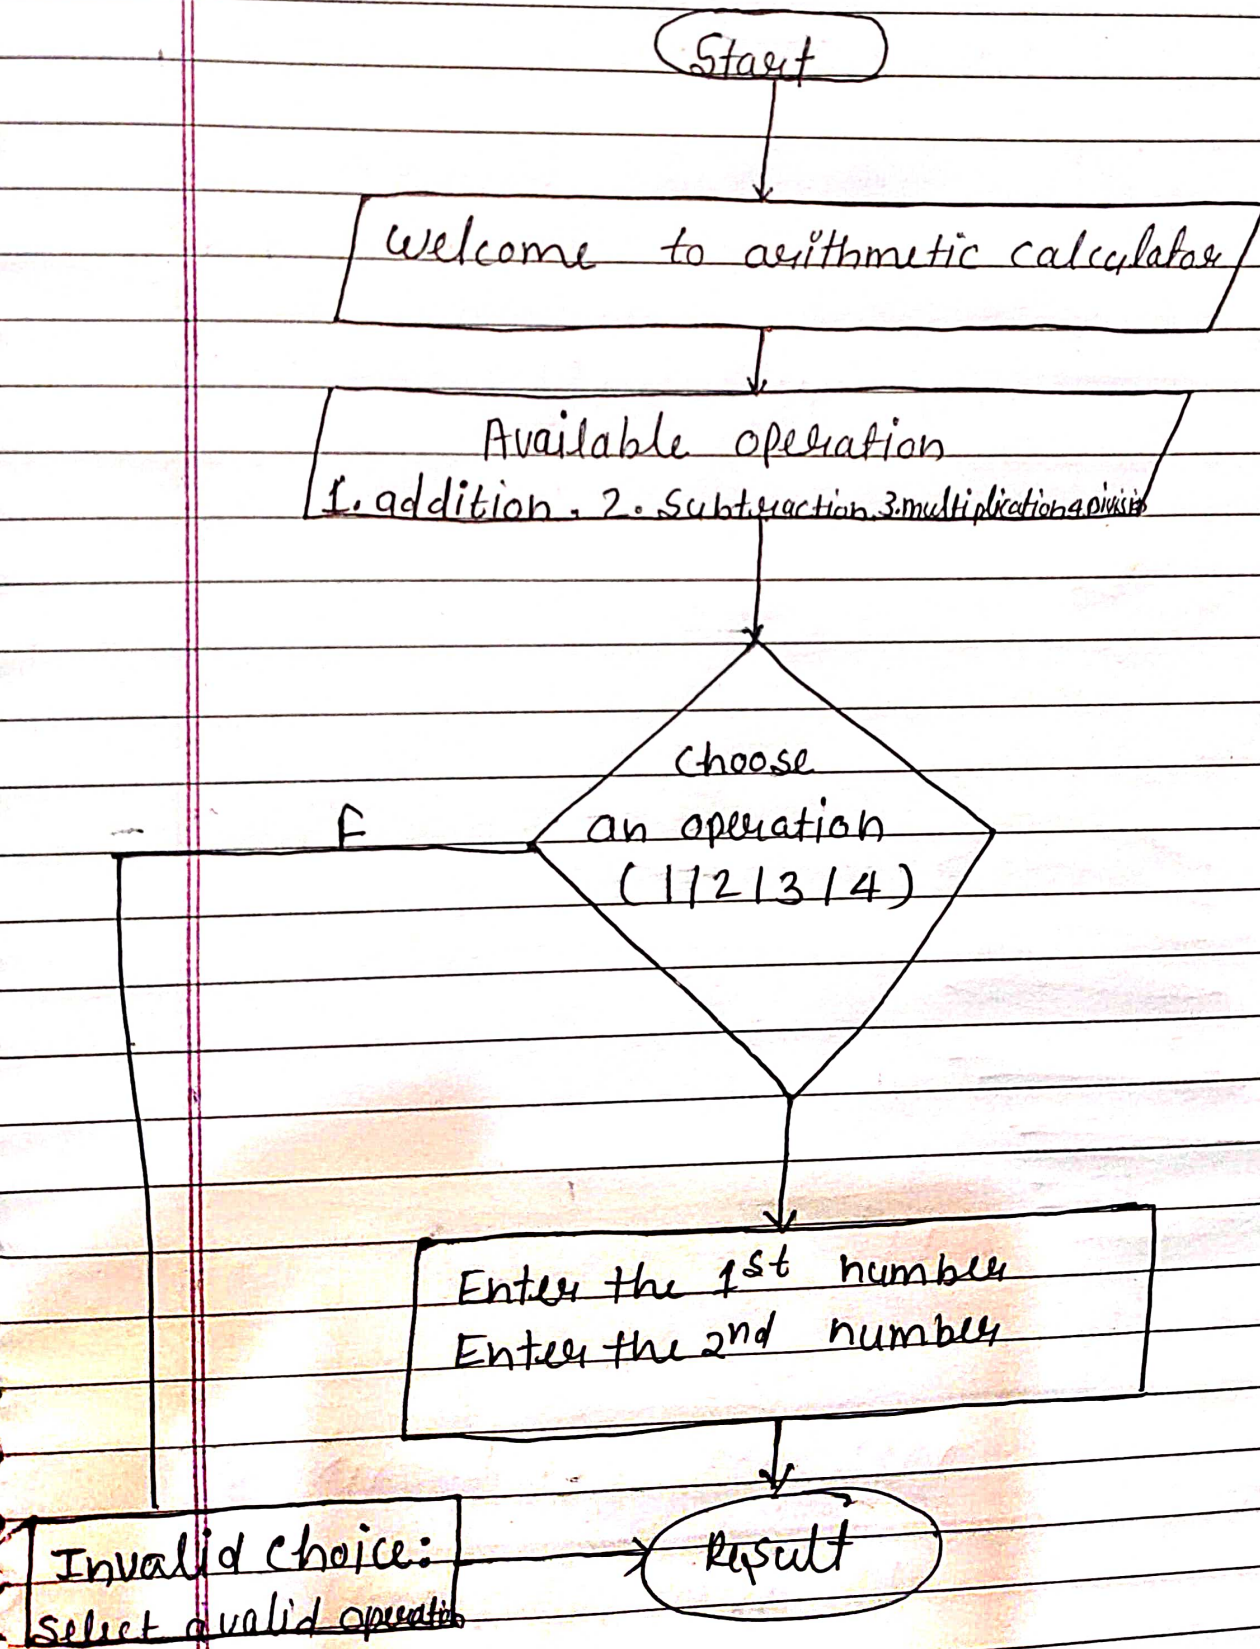 Start
Welcome to arithmetic calculator
Available operation
1. addition. 2. Subtraction. 3. multiplication 4. Division
Choose
an operation
(1/2/3/4)
F
Enter the 1st number
Enter the 2nd number
Invalid choice:
Select a valid operation
Result